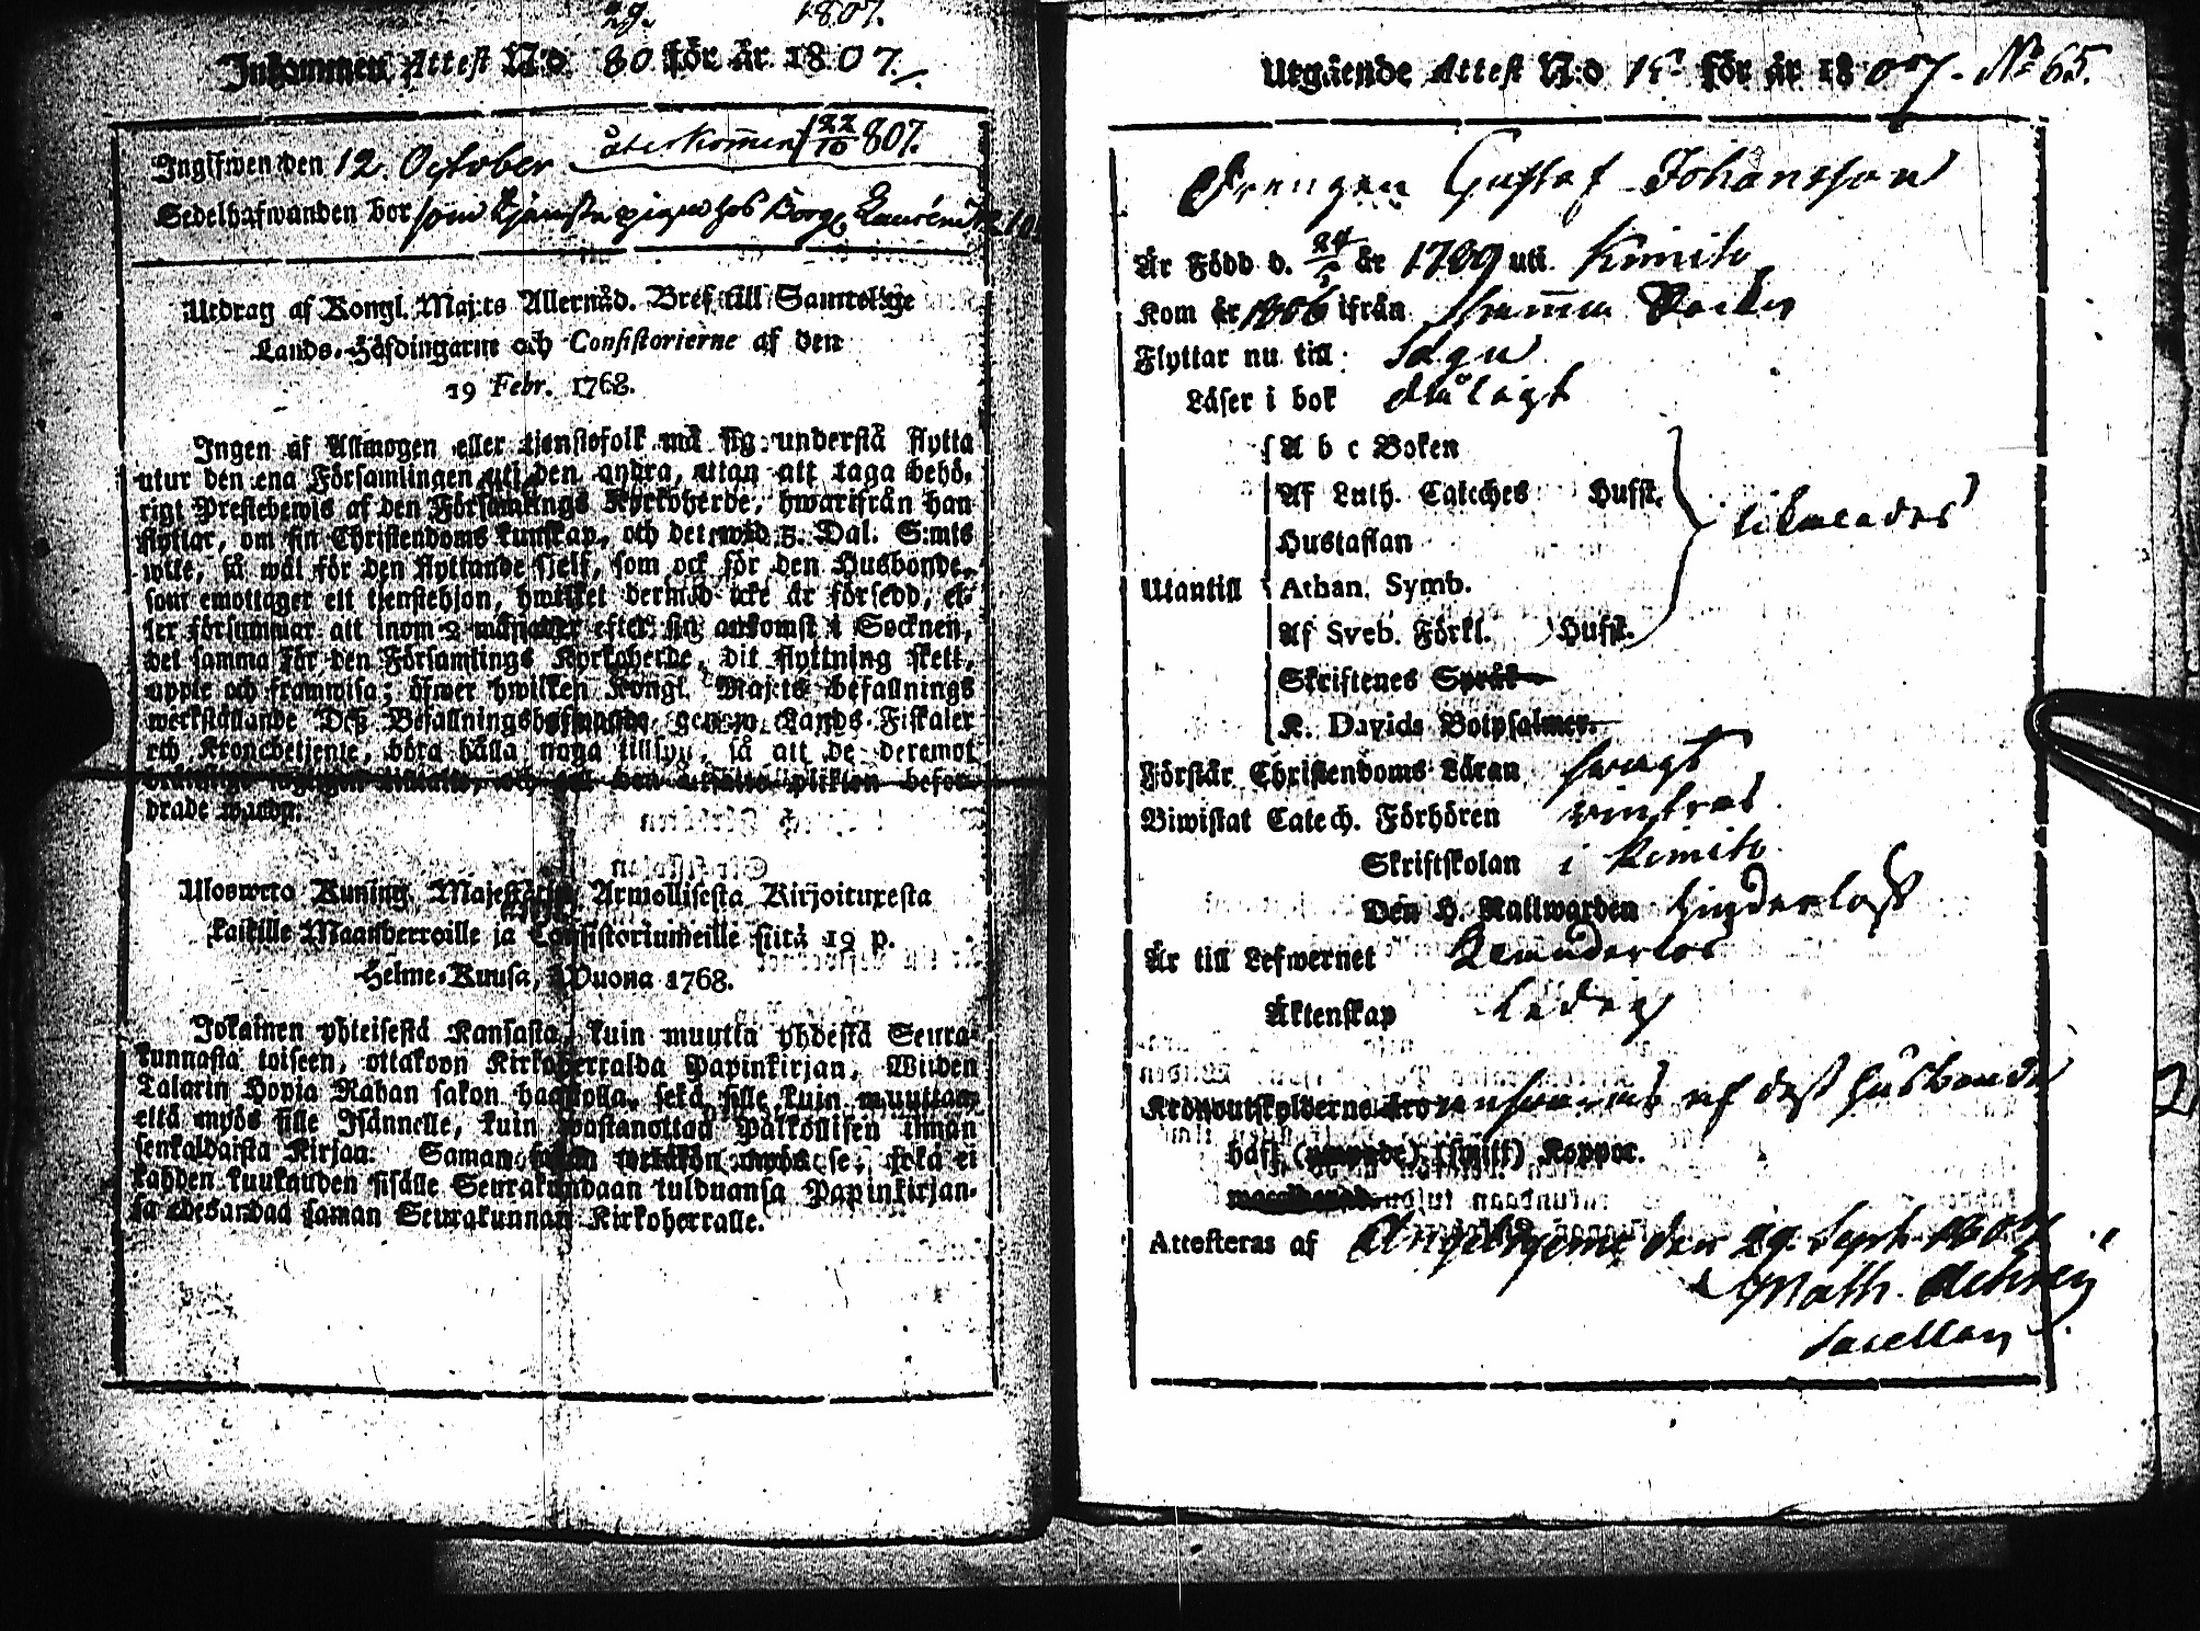 29. 1807.
Inkommen Attest N:o 80 för år 1807.
Ingifwen den 12. October återkommen 22/10 807.
Sedelhafwanden bor som tjenstepiga hos Borg. Laurén
Utdrag af Kongl. Maj:ts Allernåd. Bref till Samtelige
Lands-Höfdingarne och Consistorierne af den
19 Febr. 1768.
Ingen af Allmogen eller tjenstefolk må sig understå flytta
utur den ena Församlingen uti den andra, utan att taga behö-
rigt Prestebewis af den Församlings Kyrkoherde, hwarifrån han
flyttar, om sin Christendoms kunskap, och det wid 5. Dal. S:mts
wite, så wäl för den flyttande sielf, som ock för den Husbonde,
som emottager ett tjenstehjon, hwilket dermed icke är försedd, el-
ler försummar att inom 2 månader efter sin ankomst i Socknen,
det samma för den Församlings Kyrkoherde, dit flyttning skett,
uppte och framwisa; öfwer hwilken Kongl. Maj:ts befallnings
werkställande Deß Befallningshafwande, genom Lands-Fiskaler
och Kronobetjente, böra hålla noga tillsyn, så att de deremot
plikten befor-
drade warda.
Ulosweto Kuning. Majestätin Armollisesta Kirjoituxesta
kaikille Maanherroille ja Consistoriumeille siitä 19 p.
Helme-Kuusa, Wuona 1768.
Jokainen yhteisestä Kansasta, kuin muutta yhdestä Seura-
kunnasta toiseen, ottakoon Kirkoherralda Papinkirjan, Wiiden
Talarin Hopia Rahan sakon haastolla, sekä sille kuin muuttaa,
että myös sille Isännelle, kuin wastanottaa Palkollisen ilman
senkaldaista Kirjaa. Saman sakon wetäkön myös se, joka ei
kahden kuukauden sisälle Seurakundaan tulduansa Papinkirjan-
sa edesanda saman Seurakunnan Kirkoherralle.
Utgående Attest N:o för år 1807. No 65.
Drengen Gustaf Johansson
Är Född d. 24 år 1789 uti Kimito
Kom år 1806 ifrån samma Socken
Flyttar nu till Sagu
Läser i bok dråligt
A b c Boken
Af Luth. Cateches Husst.
Hustaflan likaledes
Utantill Athan. Symb.
Af Sveb. Förkl. Husst.
Skriftenes Språk
K. Davids Botpsalmer.
Förstår Christendoms Läran swagt
Biwistat Catech. Förhören wintras
Skriftskolan i Kimito
Den H. Nattwarden hinderlöst
Är till Lefwernet klanderlös
Äktenskap ledig
Kronoutskylderne answaras af dess husbonde
haft Koppor.
Attesteras af den 29. Sept. 1807
Math.
Sacellan